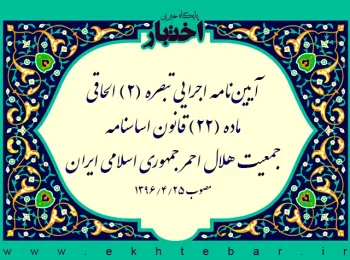 پایگاه خبری
اختبار
آیین‌نامه اجرایی تبصره (۲) الحاقی
ماده (۲۲) قانون اساسنامه
جمعیت هلال احمر جمهوری اسلامی ایران
مصوب ۱۳۹۶/۴/۲۵
www.ekhtebar.ir